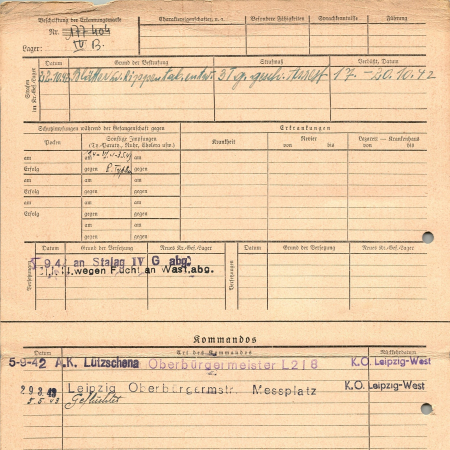 Beschriftung der Erkennungsmarke
Nr. 177404
Lager: IV B.
Charaktereigenschaften, u. a.
Besondere Fähigkeiten
Sprachkenntnisse
Führung
Strafen im Kr.-Gef.-Lager
Datum
Grund der Bestrafung
Strafmaß
Verbüßt, Datum
3 T. g. gesch. Arrest
17.-20.10.42
Schutzimpfungen während der Gefangenschaft gegen
Erkrankungen
Pocken
Sonstige Impfungen
(Ty.-Paraty., Ruhr, Cholera usw.)
Krankheit
Revier
von bis
Lazarett - Krankenhaus
von bis
am am am
Erfolg gegen gegen
am am am
Erfolg gegen gegen
am am am
Erfolg gegen gegen
am am
gegen gegen
Versetzungen
Datum
Grund der Versetzung
Neues Kr.-Gef.-Lager
Versetzungen
Datum
Grund der Versetzung
Neues Kr.-Gef.-Lager
an Stalag IV G abg.
wegen Flucht an Wast. abg.
Kommandos
Datum
Art des Kommandos
Rückkehrdatum
5-9-42 A.K. Lützschena Oberbürgermeister L218 K.O. Leipzig-West
29.3.43 Leipzig Oberbürgermstr. Messplatz K.O. Leipzig-West
8.5.43 Geflüchtet